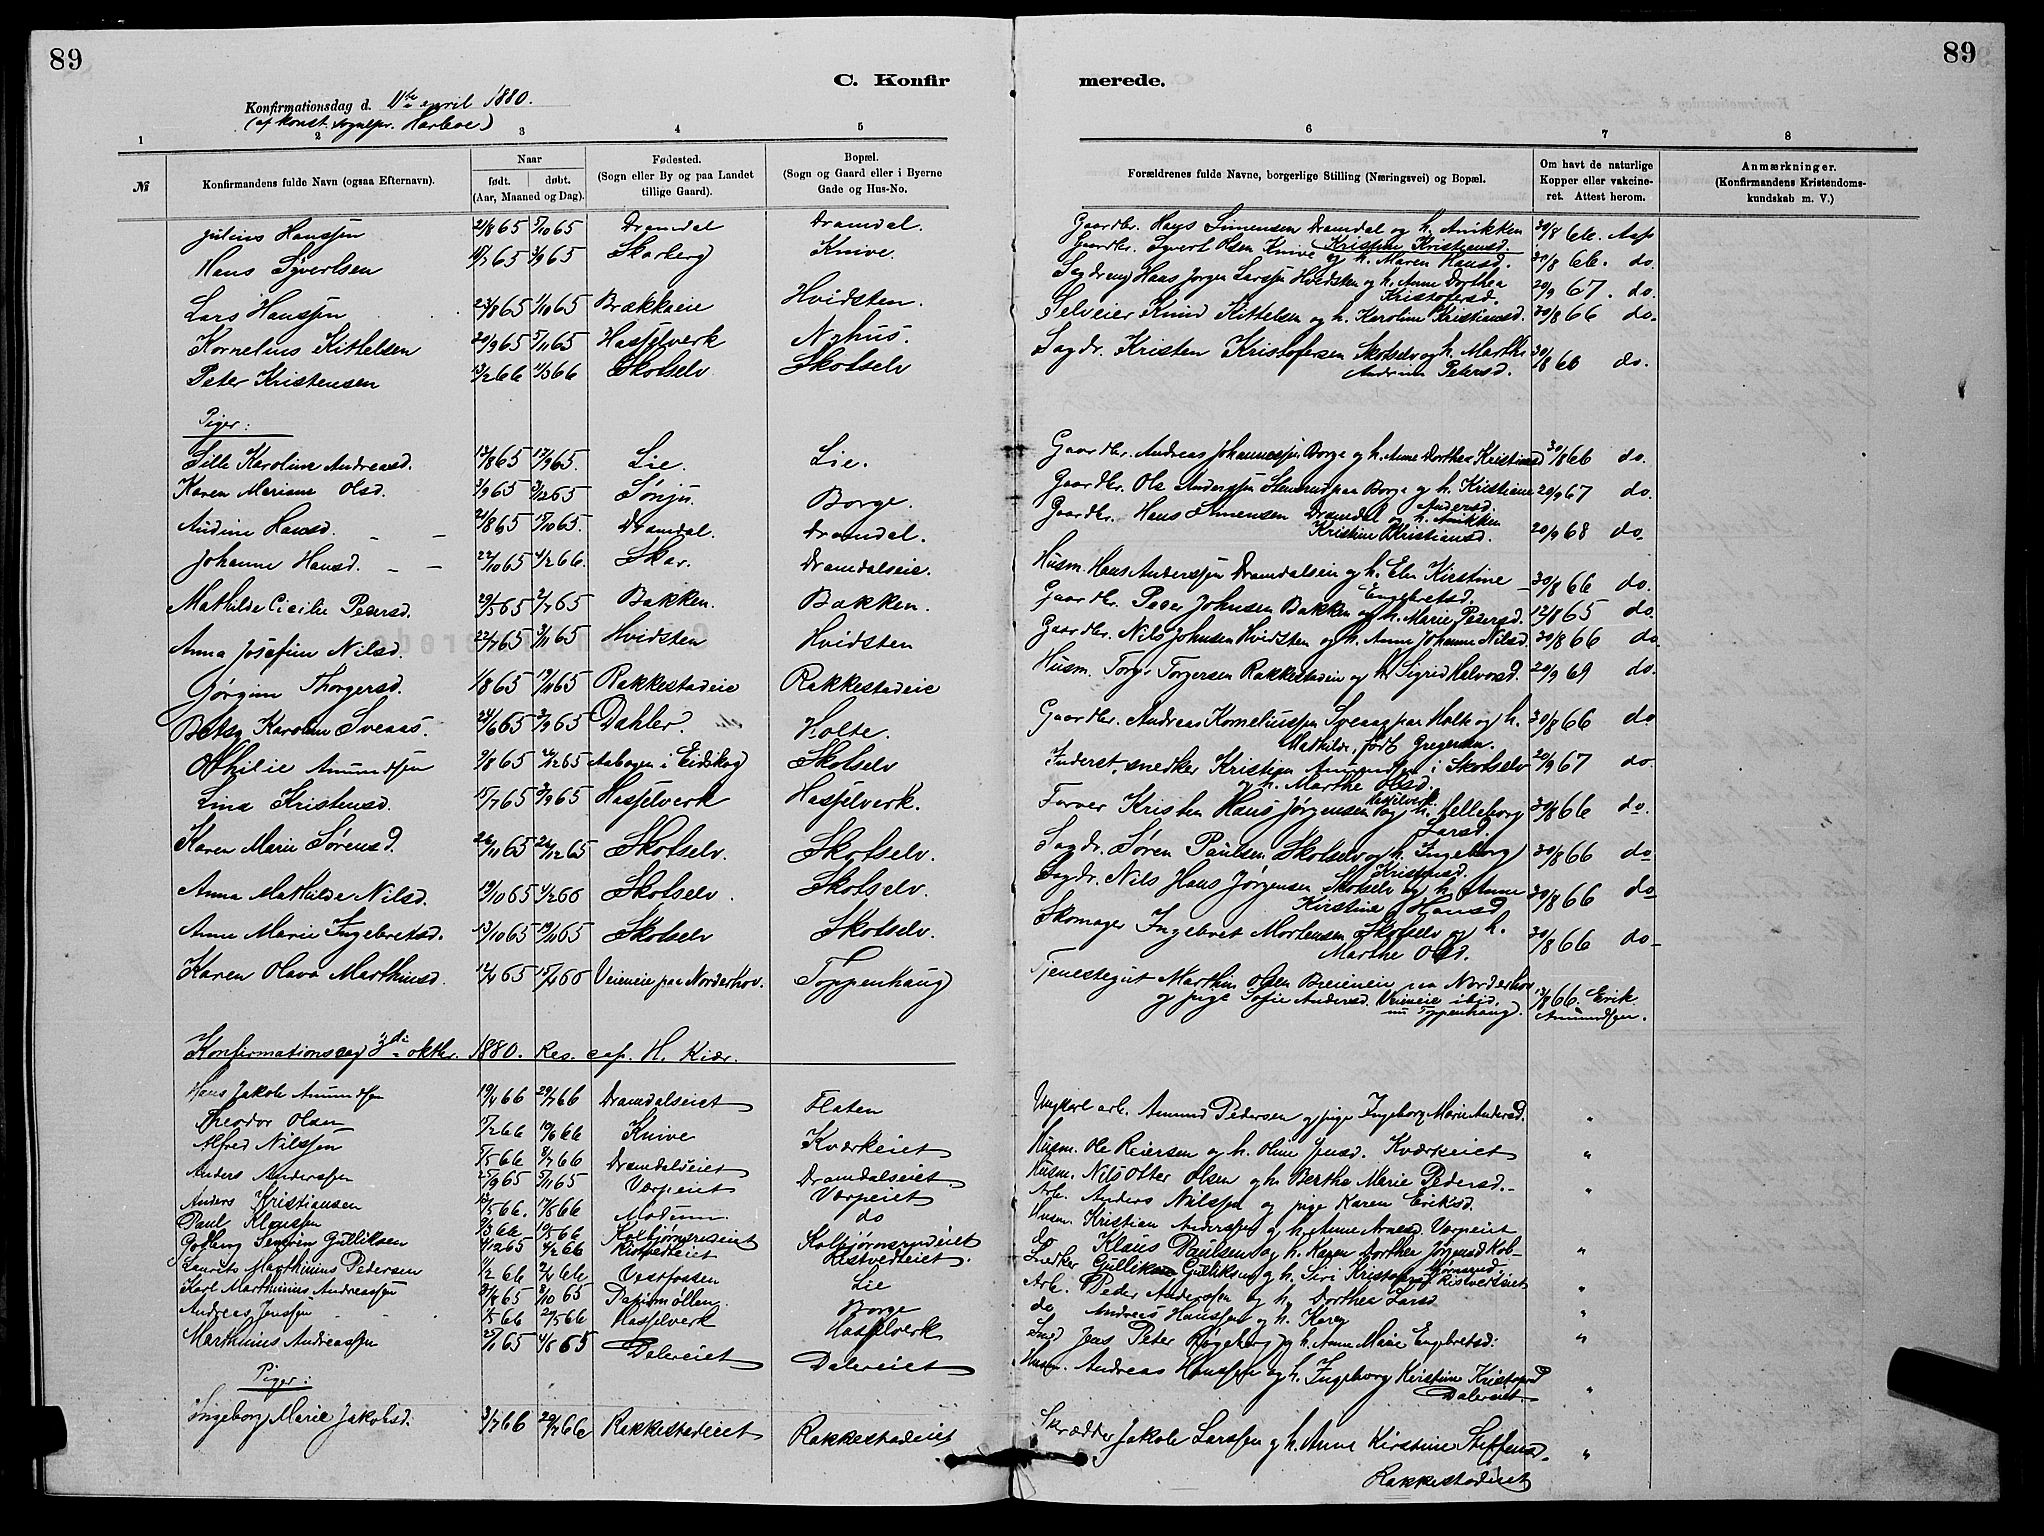 89
89
C. Konfir
merede.
Konfirmationsdag d. 11te april 1880.
(af konst. sognepr. Harboe)
1 2 3 4 5 6 7 8
№
Konfirmandens fulde Navn (ogsaa Efternavn).
Naar
født. døbt.
(Aar, Maaned og Dag).
Fødested.
(Sogn eller By og paa Landet
tillige Gaard).
Bopæl.
(Sogn og Gaard eller i Byerne
Gade og Hus-No.
Forældrenes fulde Navne, borgerlige Stilling (Næringsvei) og Bopæl.
Om havt de naturlige
Kopper eller vakcine-
ret. Attest herom.
Anmærkninger.
(Konfirmandens Kristendoms-
kundskab m. V.)
Julius Hanssen 21/8 65 5/10 65 Dramdal Dramdal. Gaardbr. Hans Simensen Dramdal og h. Anikken Kristine Kristiansd. 30/8 66. Aap
Hans Syvertsen 15/7 65 3/9 65 Skarberg Knive. Gaardbr. Syvert Olsen Knive og h. Maren Hansd. 30/8 66. do.
Lars Hanssen 23/8 65 1/10 65 Brækkaen Hvidsten. Sagdreng Hans Jørgen Larssen Hvidsten og h. Anne Dorthea Kristofersd. 20/9 67. do.
Kornelius Kittelsen 20/9 65 5/11 65 Hasselverk Nyhus. Selveier Knud Kittelsen og h. Karoline Kristiansd. 30/8 66 do.
Peter Kristensen 13/2 66 1/3 66 Skotselv Skotselv Sagdr. Kristen Kristofersen Skotselv og h. Marthe Andrine Petersd. 30/8 66 do.
Piger:
Sille Karoline Andreasd. 12/8 65 17/9 65. Lie. Lie. Gaardbr. Andreas Johannessen Borge og h. Anne Dorthea Kristiansd 30/8 66 do.
Karen Mariane Olsd. 3/9 65 3/12 65 Sønju Borge. Gaardbr. Ole Anderssen Stenrud paa Borge og h. Kristiane Andersd. 20/9 67 do.
Audine Hansd. 21/8 65 15/10 65. Dramdal. Dramdal. Gaardbr. Hans Simensen Dramdal og h. Anikken Kristine Kristiansd. 20/9 68 do.
Johanne Hansd. 22/10 65 4/2 66. Skar. Dramdalseie. Husm. Hans Anderssen Dramdalseie og h. Elen Kirstine Engebretsd. 30/8 66 do.
Mathilde Cicilie Petersd. 29/5 65 2/7 65 Bakken. Bakken. Gaardbr. Peter Johnsen Bakken og h. Marie Petersd. 12/8 65 do.
Anna Josefine Nilsd. 22/7 65 3/11 65 Hvidsten Hvidsten Gaardbr. Nils Johnsen Hvidsten og h. Anne Johanne Nilsd. 30/8 66 do.
Jørgine Thorgersd. 1/8 65 19/11 65 Rakkestadeie Rakkestadeie Husm. Torger Torgersen Rakkestadeie og h. Sigrid Halvorsd. 20/9 69 do.
Betsy Karoline Sveaas. 24/6 65 3/9 65 Dahler. Holte. Gaardbr. Andreas Korneliussen Sveaas paa Holte og h. Mathilde, født Gregersen. 30/8 66 do
Othilie Amundsen 9/8 65 26/12 65 Aabogen i Eidskog Skotselv Inderst, snedker Kristian Amundsen i Skotselv og h. Marthe Olsd. 20/9 67 do
Lina Kristensd. 15/7 65 3/9 65 Hasselverk Hasselverk. Farver Kristen Hans Jørgensen Hasselverk og h. Helleborg Larsd. 30/8 66 do.
Karen Marie Sørensd. 26/11 65 26/12 65 Skotselv. Skotselv. Sagdr. Søren Paulsen Skotselv og h. Ingeborg Kristensd. 30/8 66 do
Anna Mathilde Nilsd. 19/10 65 4/2 66 Skotselv. Skotselv. Sagdr. Nils Hans Jørgensen Skotselv og h. Anne Kirstine Hansd. 30/8 66 do
Anne Marie Ingebretsd. 13/10 65 19/11 65 Skotselv Skotselv. Skomager Ingebret Mortensen Skotselv og h. Marthe Olsd. 30/8 66 do
Karen Olava Marthinsd. 12/4 65 15/4 66 Veieneie paa Norderhov. Toppenhaug Tjenestegut Marthin Olsen Breieneie paa Norderhov og pige Sofie Andersd. Veieneie ibid. nu Toppenhaug. 13/8 66. Erik Amundsen.
Konfirmationsdag 3die oktbr. 1880. Res. cap. H. Kiær.
Hans Jakob Amundsen 19/4 66 29/7 66 Dramdalseiet Flaten Ungkarl arb. Amund Pedersen og pige Ingeborg Marie Andersd. "
Theodor Olsen 5/2 66 10/6 66 Knive Kværkeiet Husm. Ole Reiersen og h. Oline Jensd. Kværkeiet "
Alfred Nilssen 7/5 66 8/7 66 Dramdalseiet Dramdalseiet Husm. Nils Otter Olsen og h. Berthe Marie Pedersd. "
Anders Anderssen 25/9 65 5/11 65 Værpeiet Værpeiet Arb. Anders Nilssen og pige Karen Eriksd.
Anders Kristiansen 13/5 66. 17/6 66 Modum do Husm. Kristian Anderssen og h. Anne Arnesd. Værpeiet
Paul Klaussen 9/3 66 10/5 66 Kolbjørnsrudeiet Kolbjørnsrudeiet do Klaus Paulsen og h. Karen Dorthea Jørgensd Kolbjørnsrud. "
Gotberg Severin Gulliksen 4/12 65 4/2 66 Ristvedteiet Ristvedteiet. Snedker Gullik Gulliksen og h. Siri Kristoffersd Ristvedteiet "
Laurits Marthinius Pedersen 11/2 66 2/4 66 Vestfossen Lie Arb. Peder Anderssen og h. Dorthea Larsd "
Karl Marthinius Andreassen 31/8 65 8/10 65 Papirmøllen Borge do Andreas Hanssen og h. Karen "
Andreas Jenssen 1/5 66 27/5 66 Hasselverk Hasselverk Smed Jens Peter Røgeberg og h. Anne Marie Engebretsd: "
Marthinius Andreassen 25/1 65 4/6 65 Dalereiet Dalereiet Husm. Andreas Hanssen og h. Ingeborg Kirstine Kristofersd Dalereiet "
Piger:
Ingeborg Marie Jakobsd. 3/7 66 29/7 66 Rakkestadeiet Rakkestadeiet Skrædder Jakob Larssen og h. Anne Kirstine Steffensd. Rakkestadeiet "